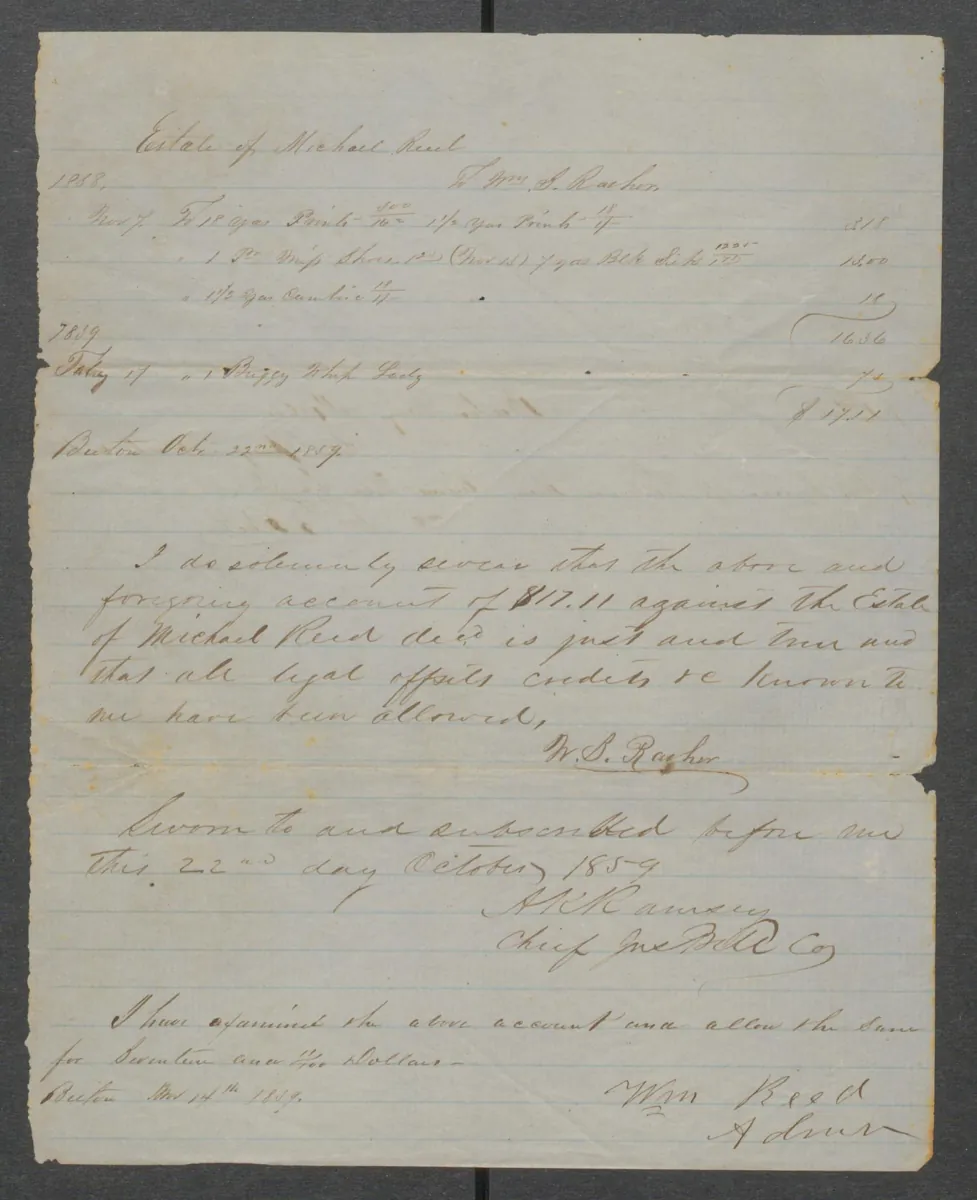 Estate of Michael Reed
1858. To Wm S. Rather
Nov 7. To 18 yds Prints 300 1 1/2 yds Prints 18 318
" 1 Pr Shoes (Nov 12) 7 yds Blk Silk 1300
" 1 1/2 yds Cambric 18
1636
1859
Feby 17 " 1 Buggy Whip Lady 75
$ 1711
Belton Oct 22nd 1859.
I do solemnly swear that the above and
foregoing account of $17.11 against the Estate
of Michael Reed decd is just and true and
that all legal offsets credits &c known to
me have been allowed,
W. S. Rather
Sworn to and subscribed before me
this 22nd day October 1859
A K Ramsey
Chief Jus Bell Co
I have examined the above account and allow the same
for Seventeen and 11/100 Dollars—
Belton Nov 14th 1859.
Wm Reed
Admr